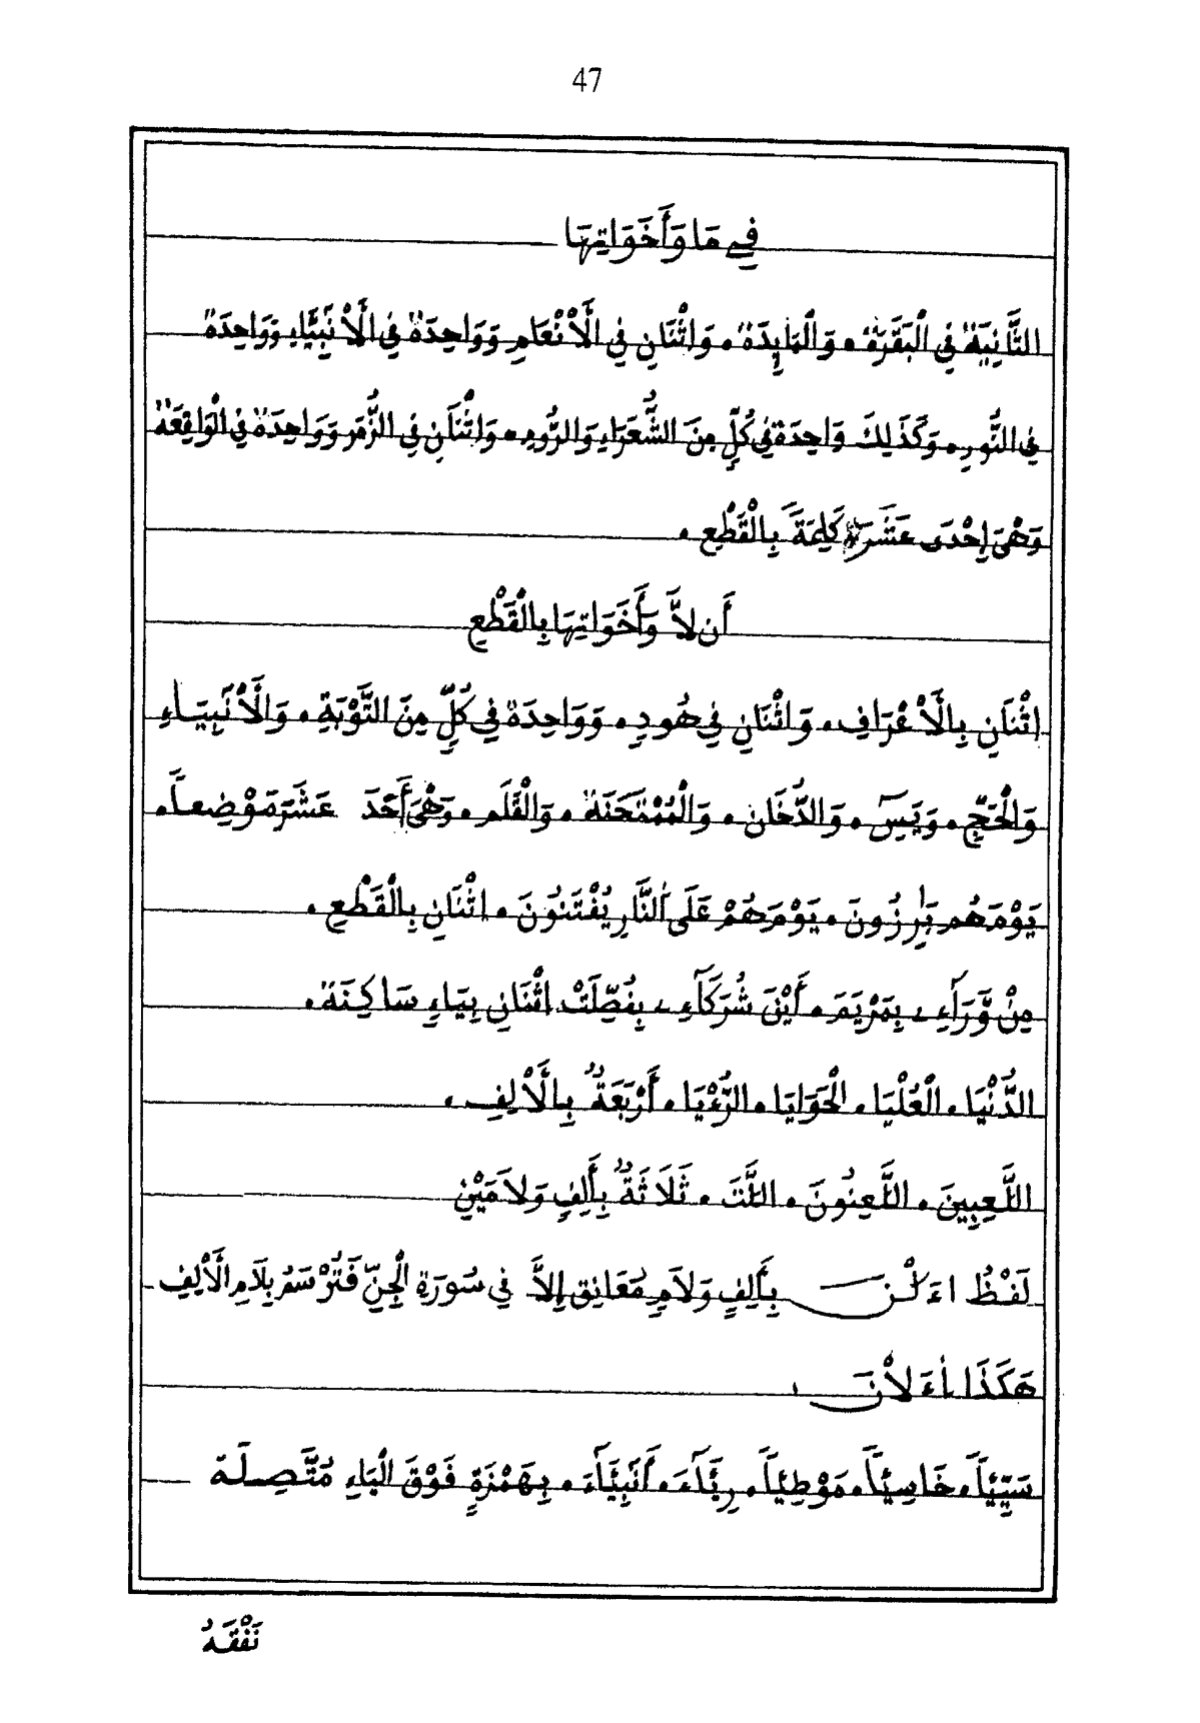 47
فِي مَا وَأَخَوَاتِهَا
الثَّانِيَةُ فِي الْبَقَرَةِ • وَالْمَايِدَةِ • وَاثْنَانِ فِي الْأَنْعَامِ وَوَاحِدَةٌ فِي الْأَنْبِيَّاءِ وَوَاحِدَةٌ
فِي النُّورِ • وَكَذَلِكَ وَاحِدَةٌ فِي كُلٍّ مِنَ الشُّعَرَاءِ وَالرُّومِ • وَاثْنَانِ فِي الزُّمَرِ وَوَاحِدَةٌ فِي الْوَاقِعَةِ
وَهْيَ إِحْدَى عَشَرَةَ كَلِمَةً بِالْقَطْعِ •
أَن لاَّ وَأَخَوَاتِهَا بِالْقَطْعِ
اثْنَانِ بِالْأَعْرَافِ • وَاثْنَانِ فِي هُودٍ • وَوَاحِدَةٌ فِي كُلٍّ مِنَ التَّوْبَةِ • وَالْأَنْبِيَاءِ
وَالْحَجِّ • وَيَسِ • وَالدُّخَانِ • وَالْمُمْتَحَنَةِ • وَالْقَلَمِ • وَهْيَ أَحَدَ عَشَرَ مَوْضِعاً •
يَوْمَ هُم بَٰرِزُونَ • يَوْمَ هُمْ عَلَى النَّارِ يُفْتَنُونَ • اثْنَانِ بِالْقَطْعِ •
مِنْ وَّرَآءِے بِمَرْيَمَ • أَيْنَ شُرَكَآءِے بِفُصِّلَتْ اثْنَانِ بِيَاءٍ سَاكِنَةٍ •
الدُّنْيَا • الْعُلْيَا • الْحَوَايَا • الرُّءْيَا • أَرْبَعَةٌ بِالْأَلِفِ •
اللَّعِبِينَ • اللَّعِنُونَ • اللَّتَ • ثَلَاثَةٌ بِأَلِفٍ وَلاَمَيْنِ
لَفْظُ اءَلْـٰنَ بِأَلِفٍ وَلاَمٍ مُعَانِقٍ إِلاَّ فِي سُورَةِ الْجِنِّ فَتُرْسَمُ بِلَامِ الْأَلِفِ
هَكَذَا اءَلْأنَ
سَيِّئاً • خَاسِئاً • مَوْطِئاً • رِئَآءَ • أَنْبِئَآءَ • بِهَمْزَةٍ فَوْقَ الْبَاءِ مُتَّصِلَة
نَفْقَهُ